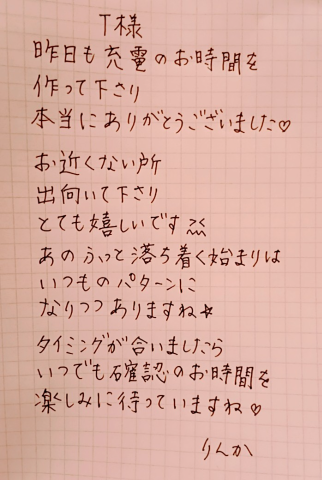 T様
昨日も充電のお時間を
作って下さり
本当にありがとうございました♡
お近くない所
出向いて下さり
とても嬉しいです
あのふっと落ち着く始まりは
いつものパターンに
なりつつありますね★
タイミングが合いましたら
いつでも確認のお時間を
楽しみに待っていますね♡
りんか